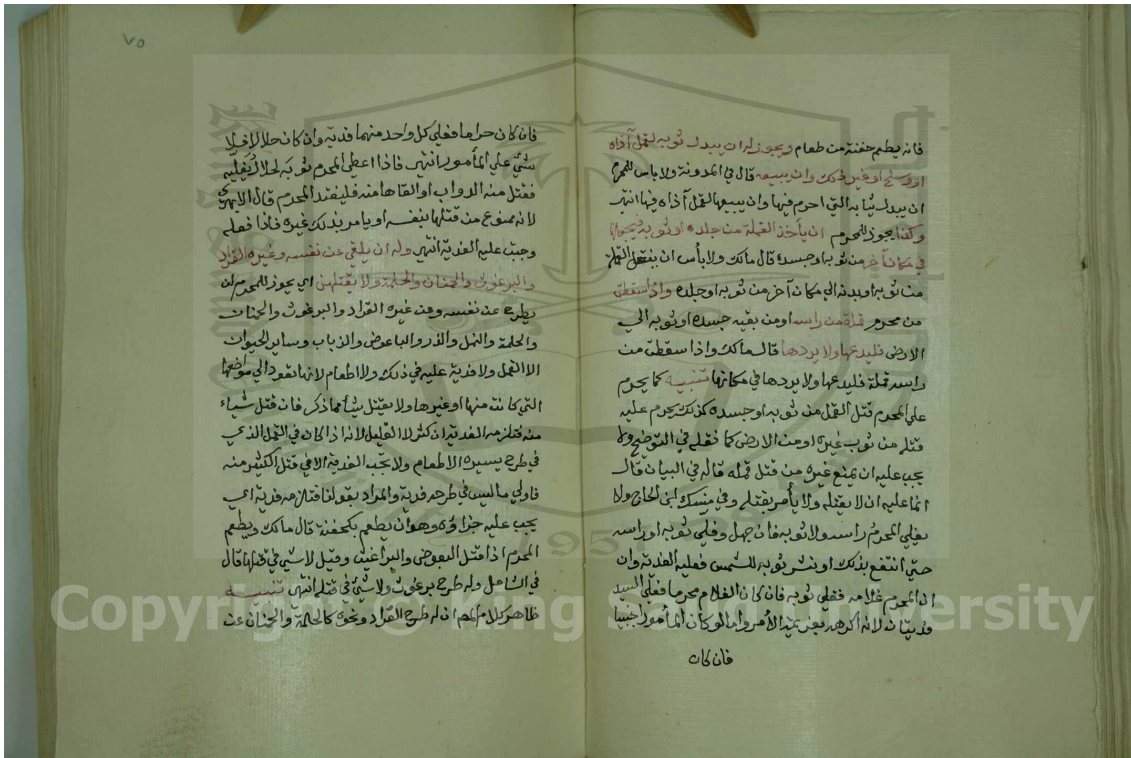 فانه يطعم حفنة من طعام ويجوز له ان يبدل ثوبه لقمل آذاه
او وسخ او غير ذلك وان يبيعه قال في المدونة ولا باس للمحرم
ان يبدل ثيابه التي احرم فيها وان يبيعها لقمل آذاه فيها انتهى
وكذا يجوز للمحرم ان يأخذ القملة من جلده او ثوبه فيجعلها
في مكان آخر من ثوبه او جسده قال مالك ولا بأس ان ينقل القملة
من ثوبه او بدنه الي مكان آخر من ثوبه او جلده واذا سقطت
من محرم قملة من راسه او من بقية جسده او ثوبه الي
الارض فليدعها ولا يردها قال مالك واذا سقطت من
راسه قملة فليدعها ولا يردها في مكانها تنبيه كما يحرم
علي المحرم قتل القمل من ثوبه او جسده كذلك يحرم عليه
قتله من ثوب غيره او من الارض كما نقله في التوضيح ولا
يجب عليه ان يمنع غيره من قتل قمله قاله في البيان قال
انما عليه ان لا يقتله ولا يأمر بقتله وفي منسك ابن الحاج ولا
يفلي المحرم راسه ولا ثوبه فان جهل وفلي ثوبه او راسه
حتي انتفع بذلك او نشر ثوبه للشمس فعليه الفدية وان
امر المحرم غلامه ففلي ثوبه فان كان الغلام محرما فعلي السيد
فديتان لانه اكرهه يعني بهذا الأمر واما لو كان المأمور اجنبيا
فان كان
٧٥
فان كان حراما فعلي كل واحد منهما فدية وان كان حلالا فلا
شئ علي المأمور انتهى فاذا اعطي المحرم ثوبه لحلال يفليه
فقتل منه الدواب او القاها منه فليفتد المحرم قال الابهري
لانه ممنوع من قتلها بنفسه او يامر بذلك غيره فاذا فعله
وجبت عليه الفدية انتهى وله ان يلقي عن نفسه وغيره القراد
والبرغوث والحمنان والحلمة ولا يقتلهن اي يجوز للمحرم ان
يطرح عن نفسه وعن غيره القراد والبرغوث والحمنان
والحلمة والنمل والذر والباعوض والذباب وساير الحيوان
الا القمل ولا فدية عليه في ذلك ولا اطعام لانها تعود الي مواضعها
التي كانت منها او غيرها ولا يقتل شيأ مما ذكر فان قتل شياء
منه فتلزمه الفدية ان كثر لا القليل لانه اذا كان في القمل الذي
في طرح يسيره الاطعام ولا تجب الفدية الا في قتل الكثير منه
فاولي ما ليس في طرحه فدية والمراد بقولنا فتلزمه فدية اي
يجب عليه جزاؤه وهو ان يطعم كحفنة قال مالك ويطعم
المحرم اذا قتل البعوض والبراغيث وقيل لا شي في قتلها قال
في الشامل وله طرح برغوث ولا شئ في قتله انتهى تنبيه
ظاهر كلام المص ان له طرح القراد ونحوه كالحلمة والحمنان عن
Copyright © King Saud University
1957